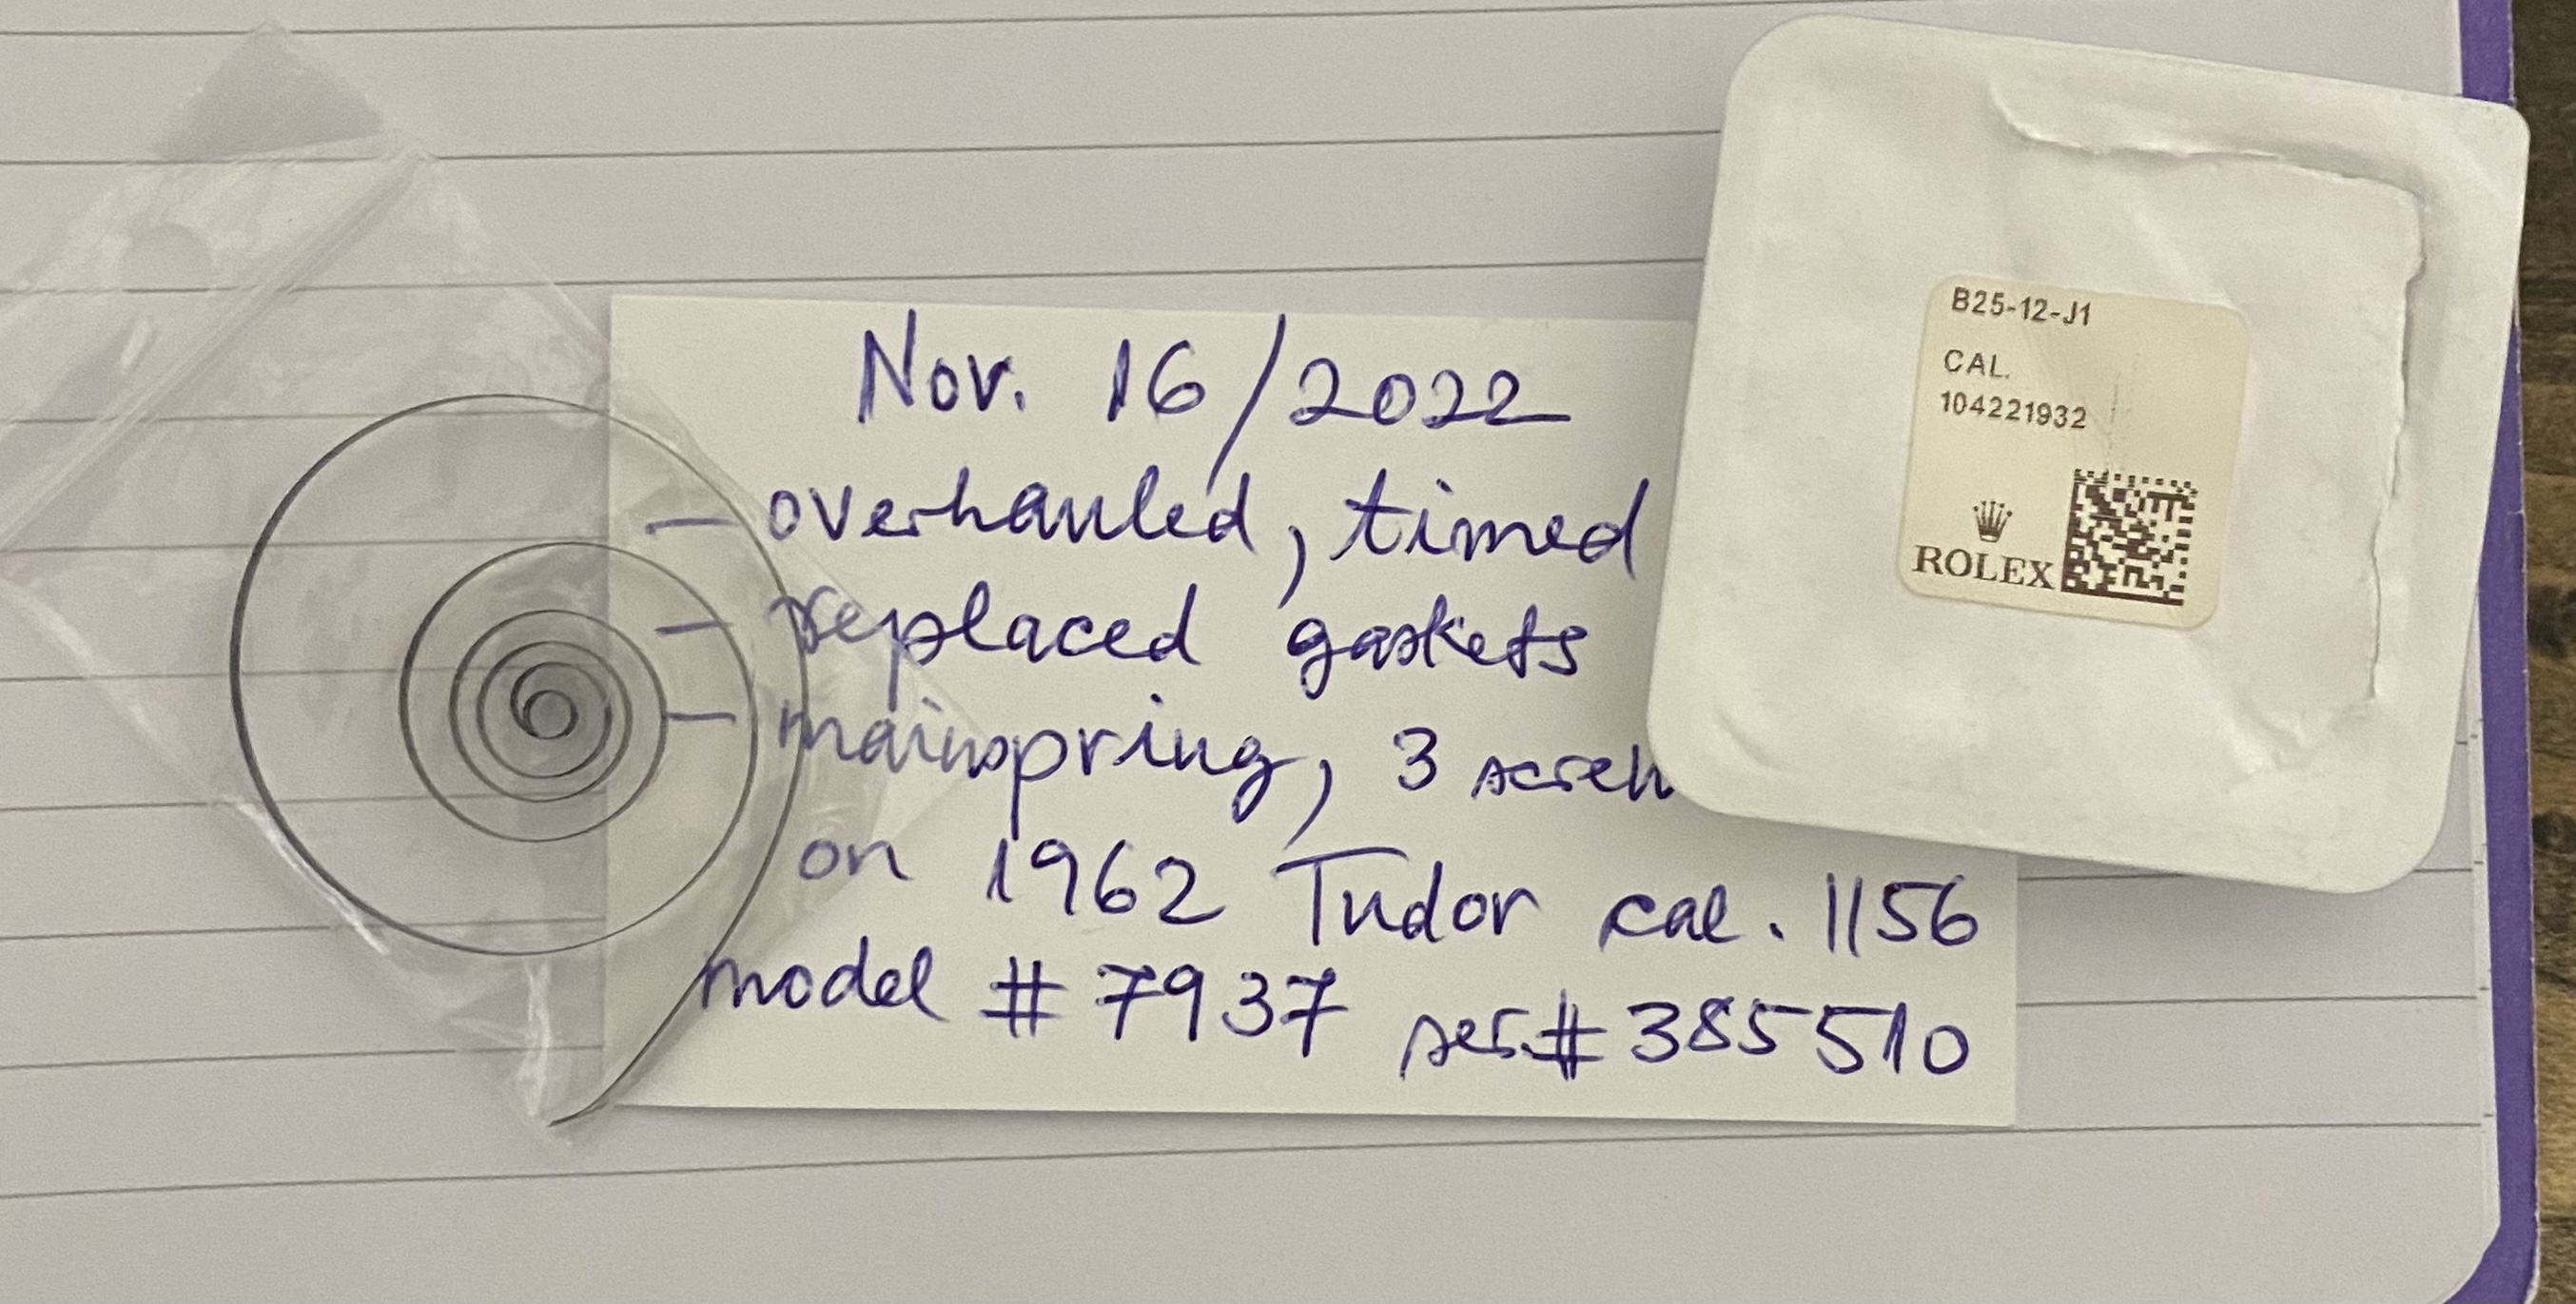 Nov. 16/2022
— overhauled, timed
— replaced gaskets
— mainspring, 3
on 1962 Tudor cal. 1156
model # 7937 ser.# 385510
B25-12-J1
CAL.
104221932
ROLEX